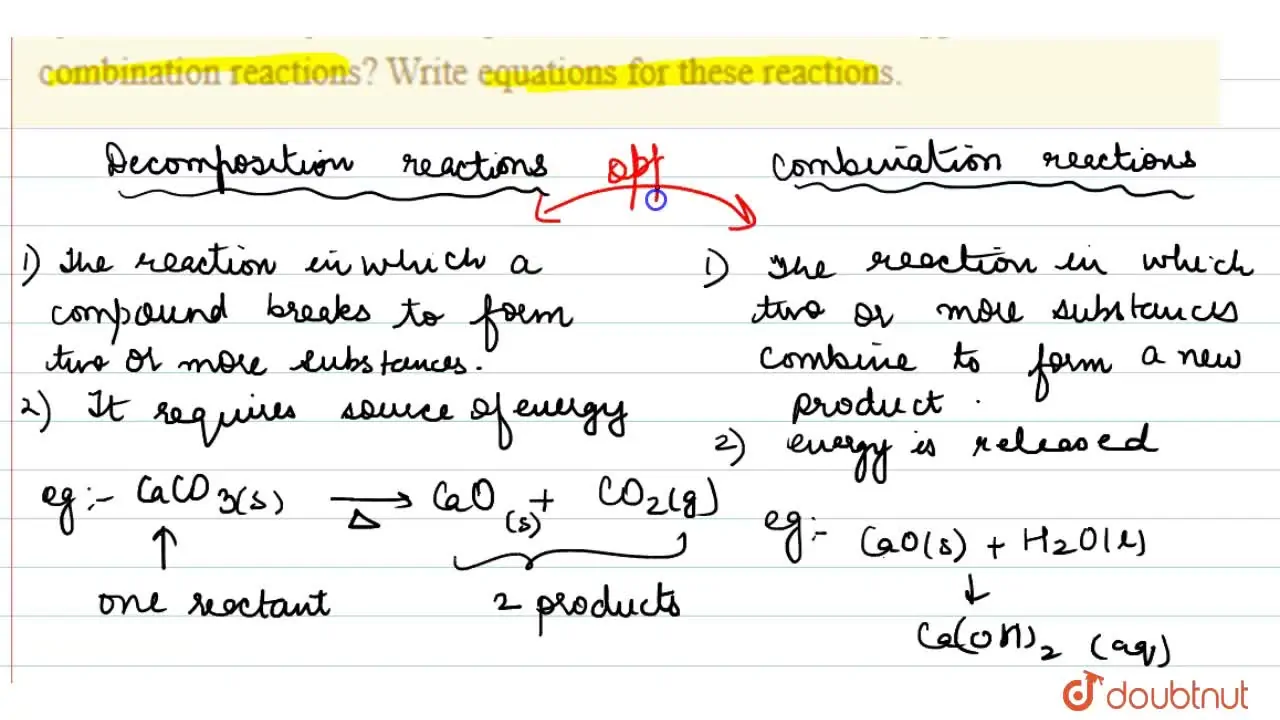 combination reactions? Write equations for these reactions.
Decomposition reactions
opp
Combination reactions
1) The reaction in which a
compound breaks to form
two or more substances.
2) It requires source of energy
eg:- CaCO3(s) →Δ CaO(s) + CO2(g)
↑
one reactant
2 products
1) The reaction in which
two or more substances
combine to form a new
product.
2) energy is released
eg:- CaO(s) + H2O(l)
↓
Ca(OH)2 (aq)
doubtnut